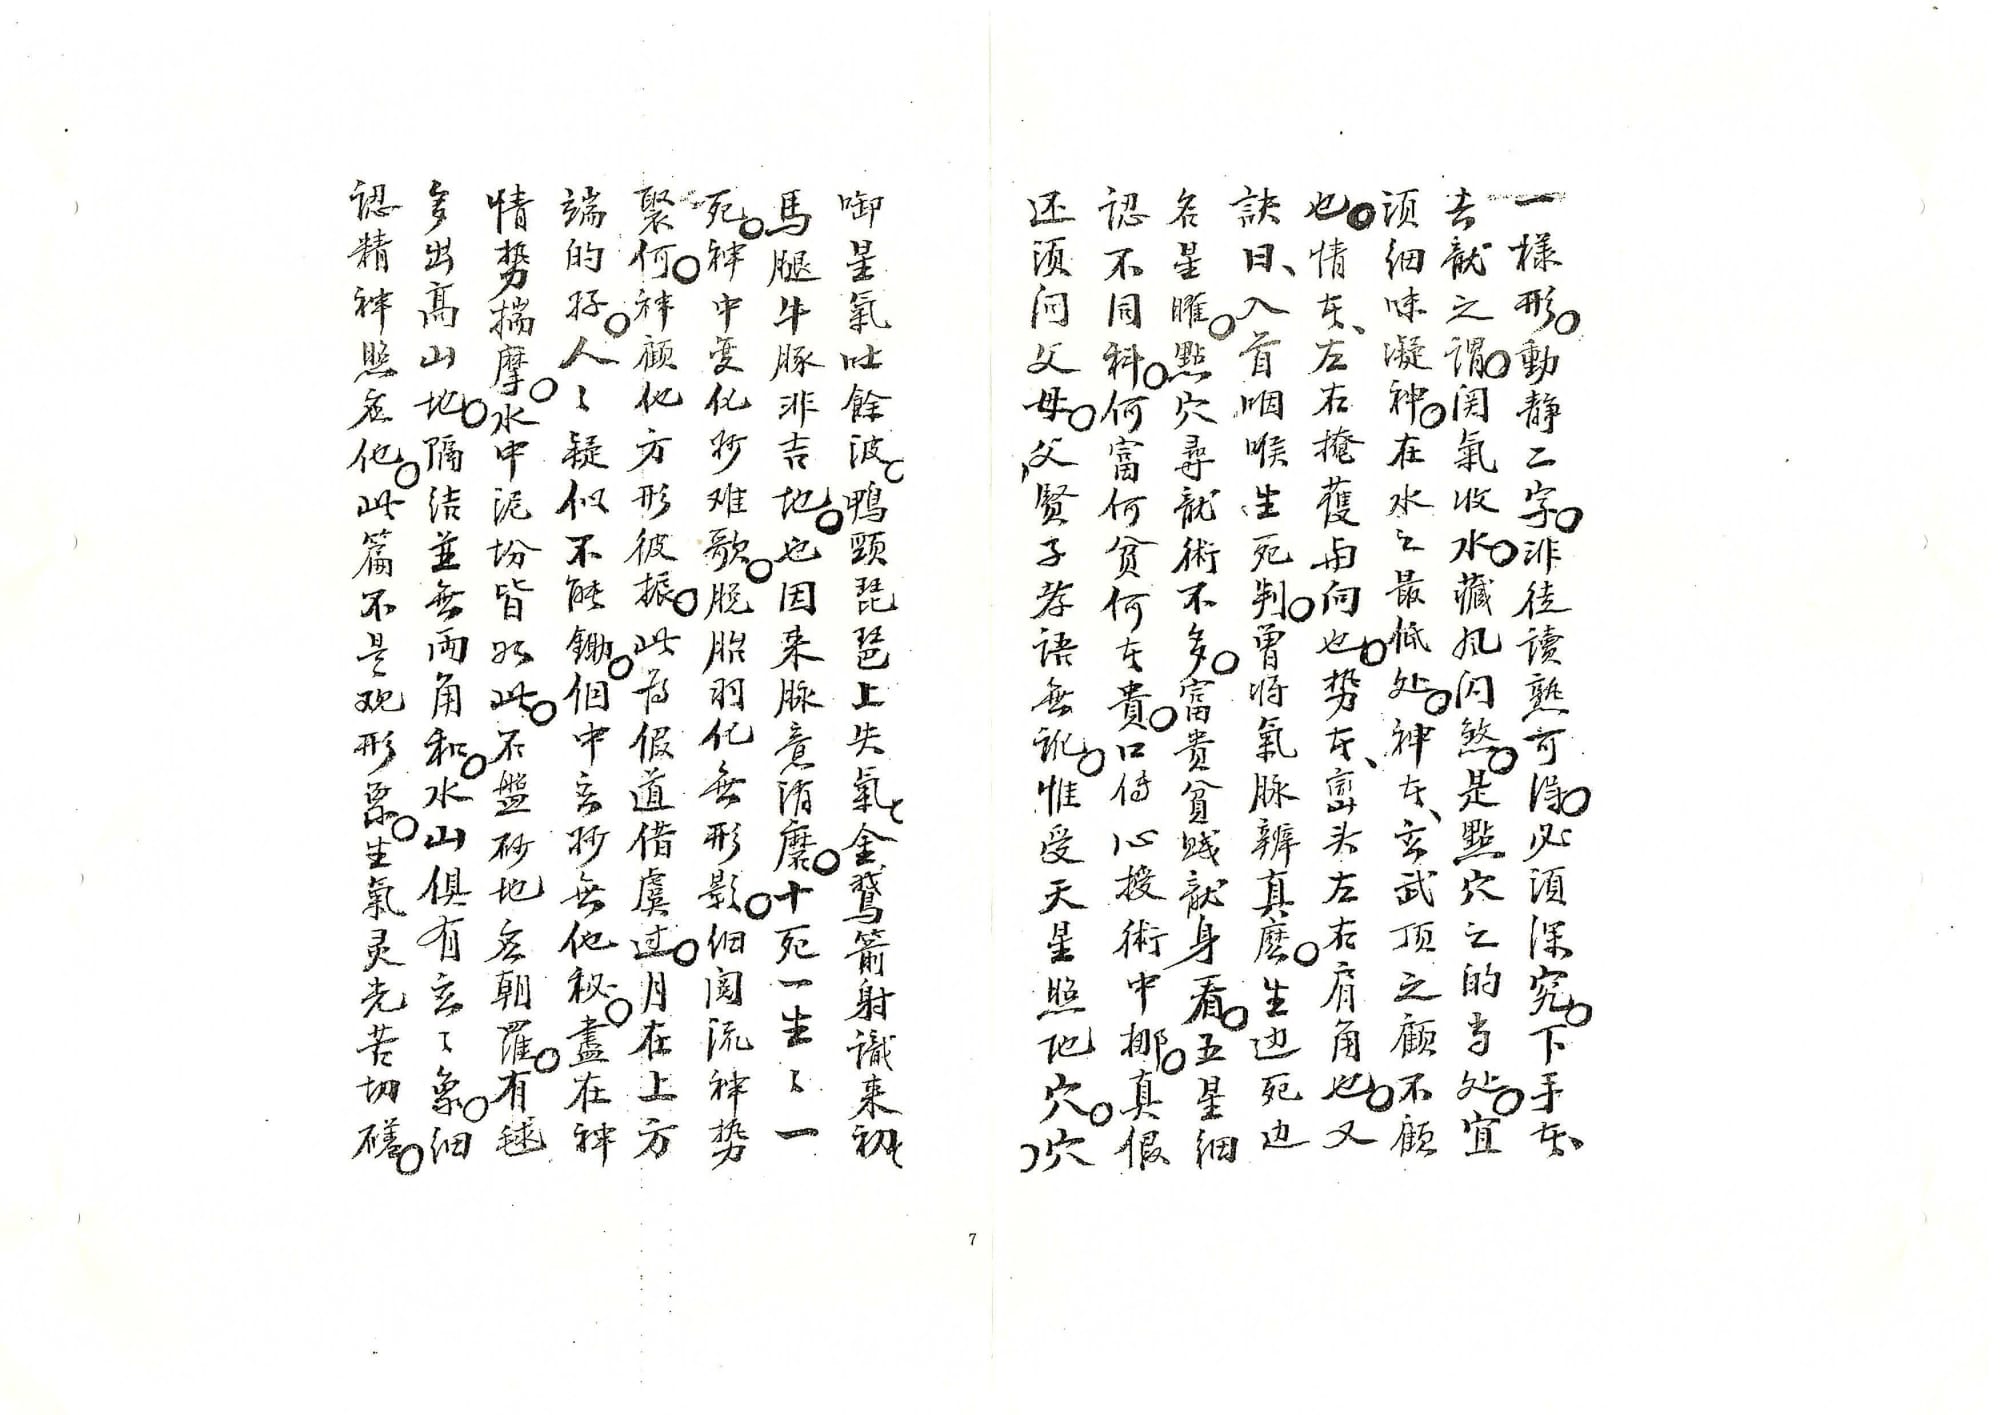 一樣形。動静二字。非徒讀熟可得。必須深究。下手者、
去龍之謂。関氣收水。藏風闪煞。是點穴之的当处。宜
須細味凝神。在水之最低处。神者、玄武頂之顧不顧
也。情者、左右掩護与向也。势者、巒头左右肩角也。又
訣曰、入首咽喉生死判。曾将氣脉辨真麽。生边死边
名星曜。點穴尋龍術不多。富贵貧贱龍身看。五星細
認不同科。何富何貧何者貴。口传心授術中挪。真假
还須问父母。父贤子孝语無訛。惟受天星照他穴。穴
啣星氣吐餘波。鴨頸琵琶上失氣、金鵞箭射識来初、
馬腿牛豚非吉地。也因来脉意消磨。十死一生々一
死。神中变化妙难歌。脱胎羽化無形影。细阅流神势
聚何。神顧他方形彼振。此为假道借虞过。月在上方
端的好。人々疑似不能鋤。個中玄妙無他秘。盡在神
情势揣摩。水中泥坋皆如此。石盤砂地名朝羅。有毬
多出高山地。隔结並無両角和。水山俱有玄々象。细
認精神照应他。此篇不是观形票。生氣灵光苦切磋。
7